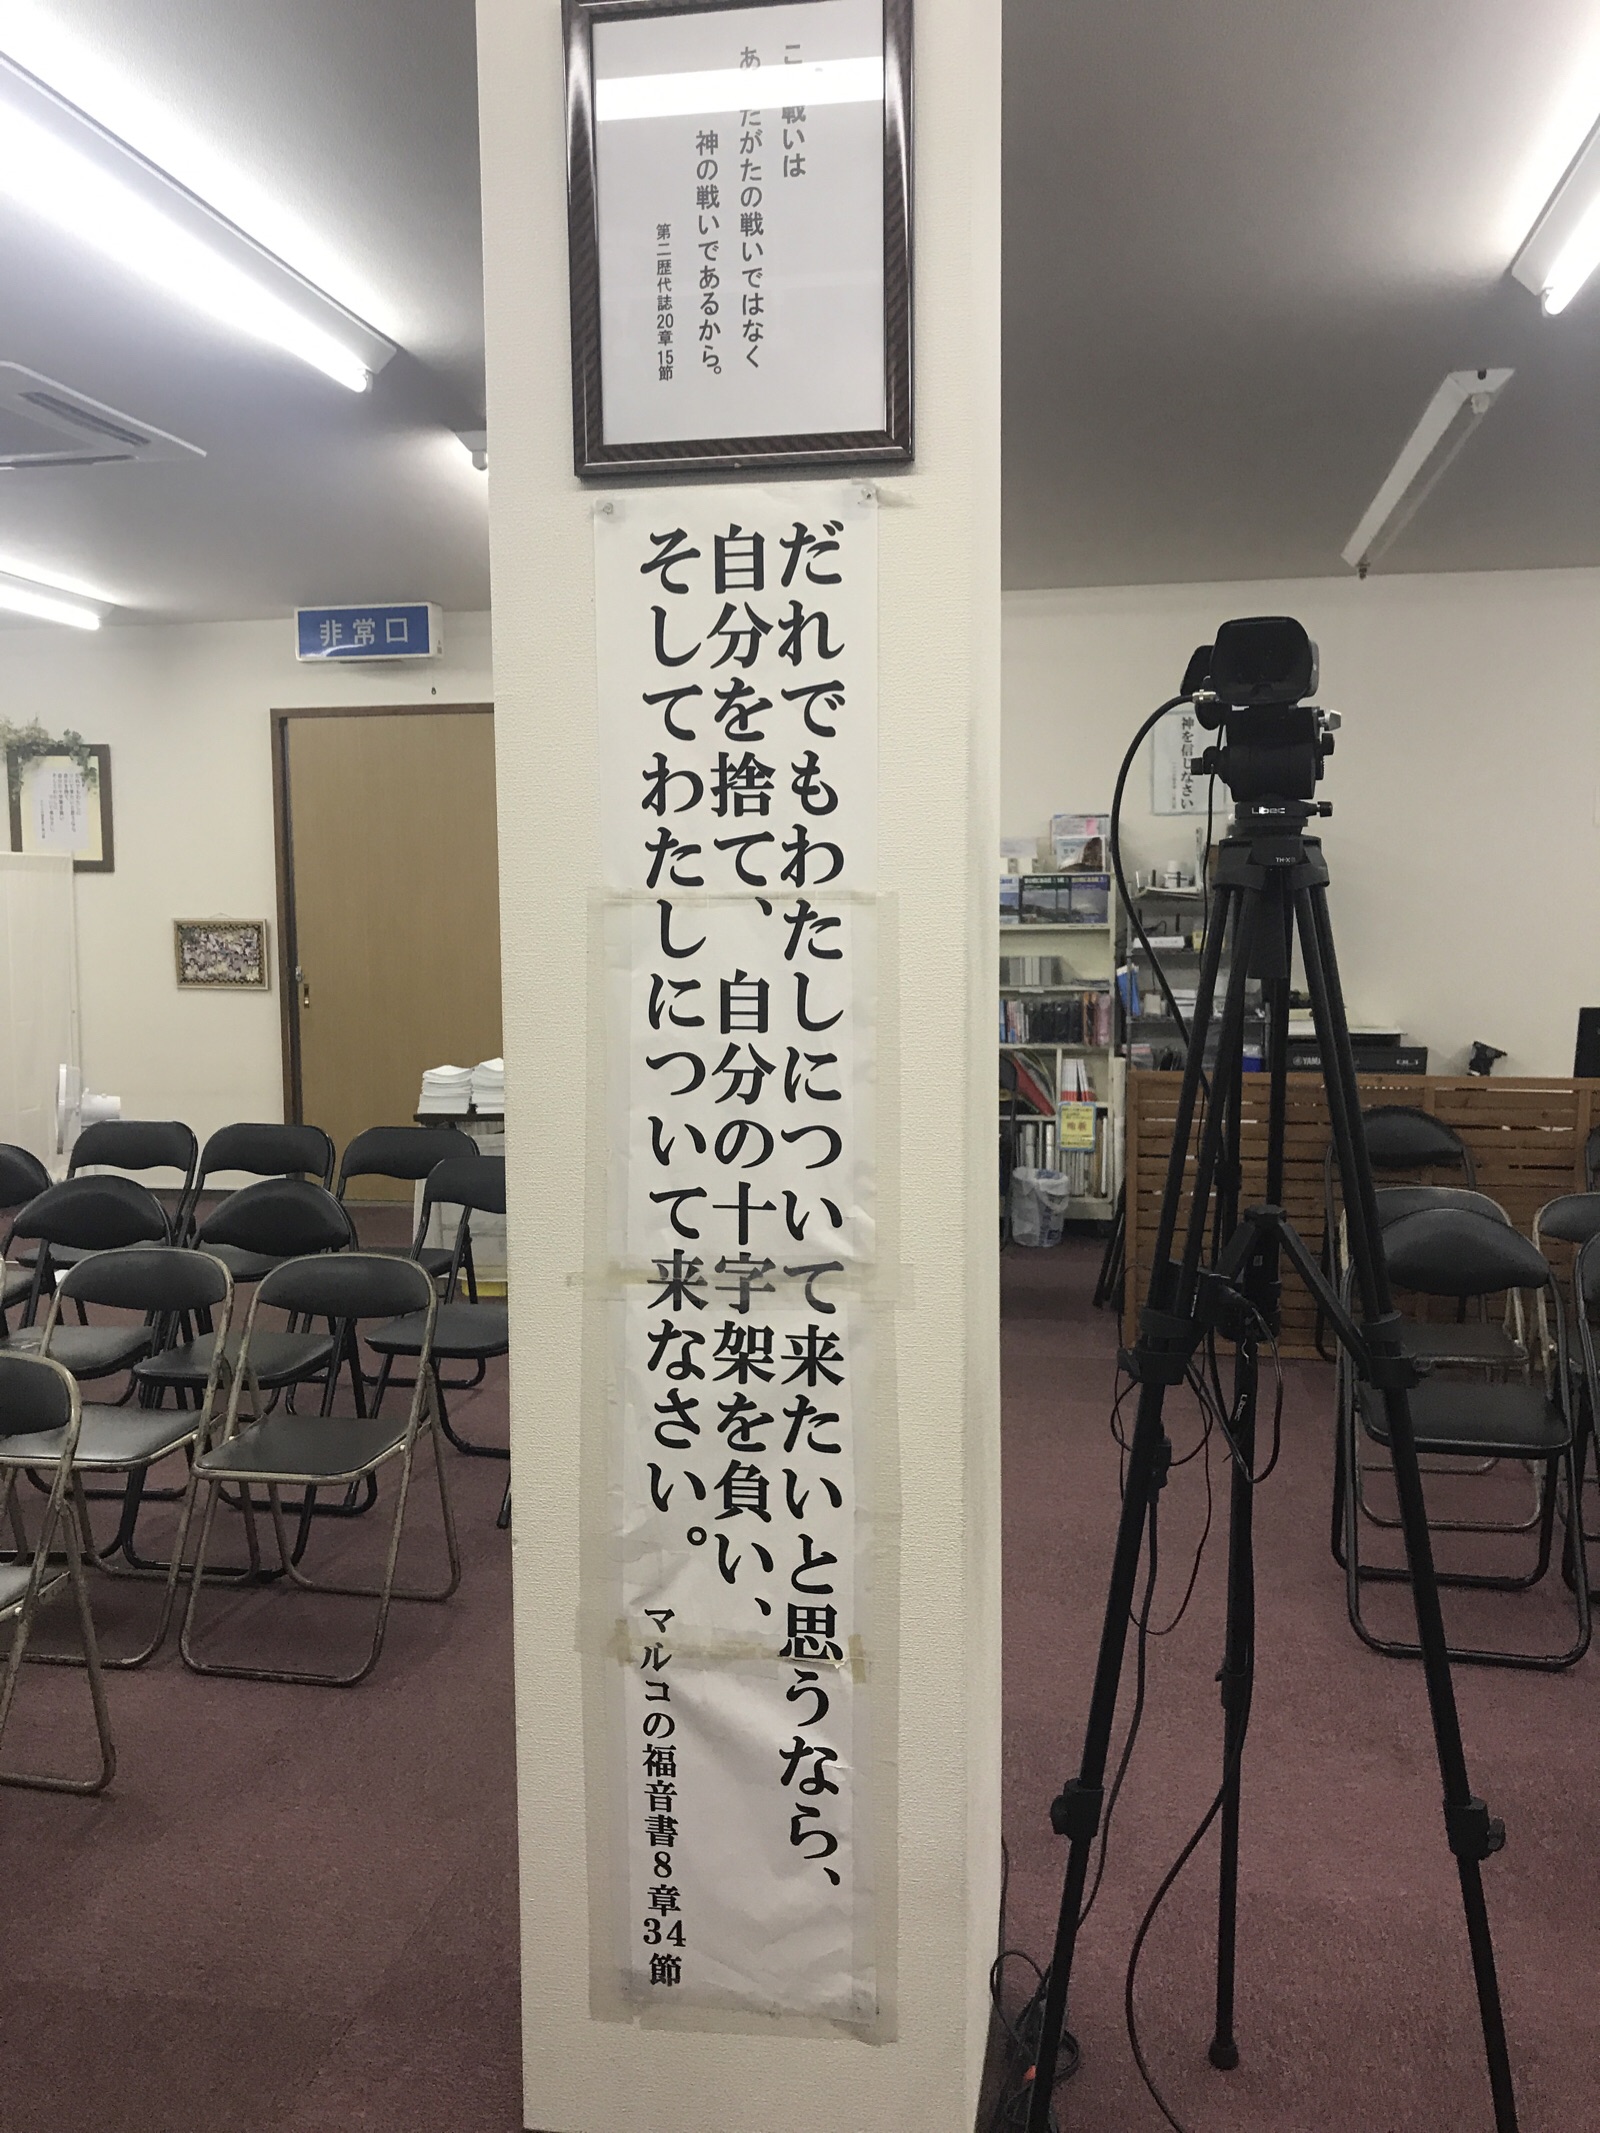 この戦いは
あなたがたの戦いではなく
神の戦いであるから。
第二歴代誌20章15節
だれでもわたしについて来たいと思うなら、
自分を捨て、自分の十字架を負い、
そしてわたしについて来なさい。
マルコの福音書8章34節
非常口
神を信じなさい
Libec
TH-X
YAMAHA